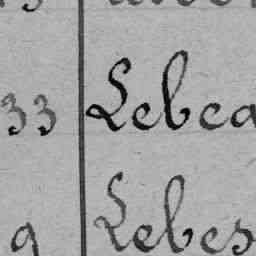 33 Lebea
9 Lebes